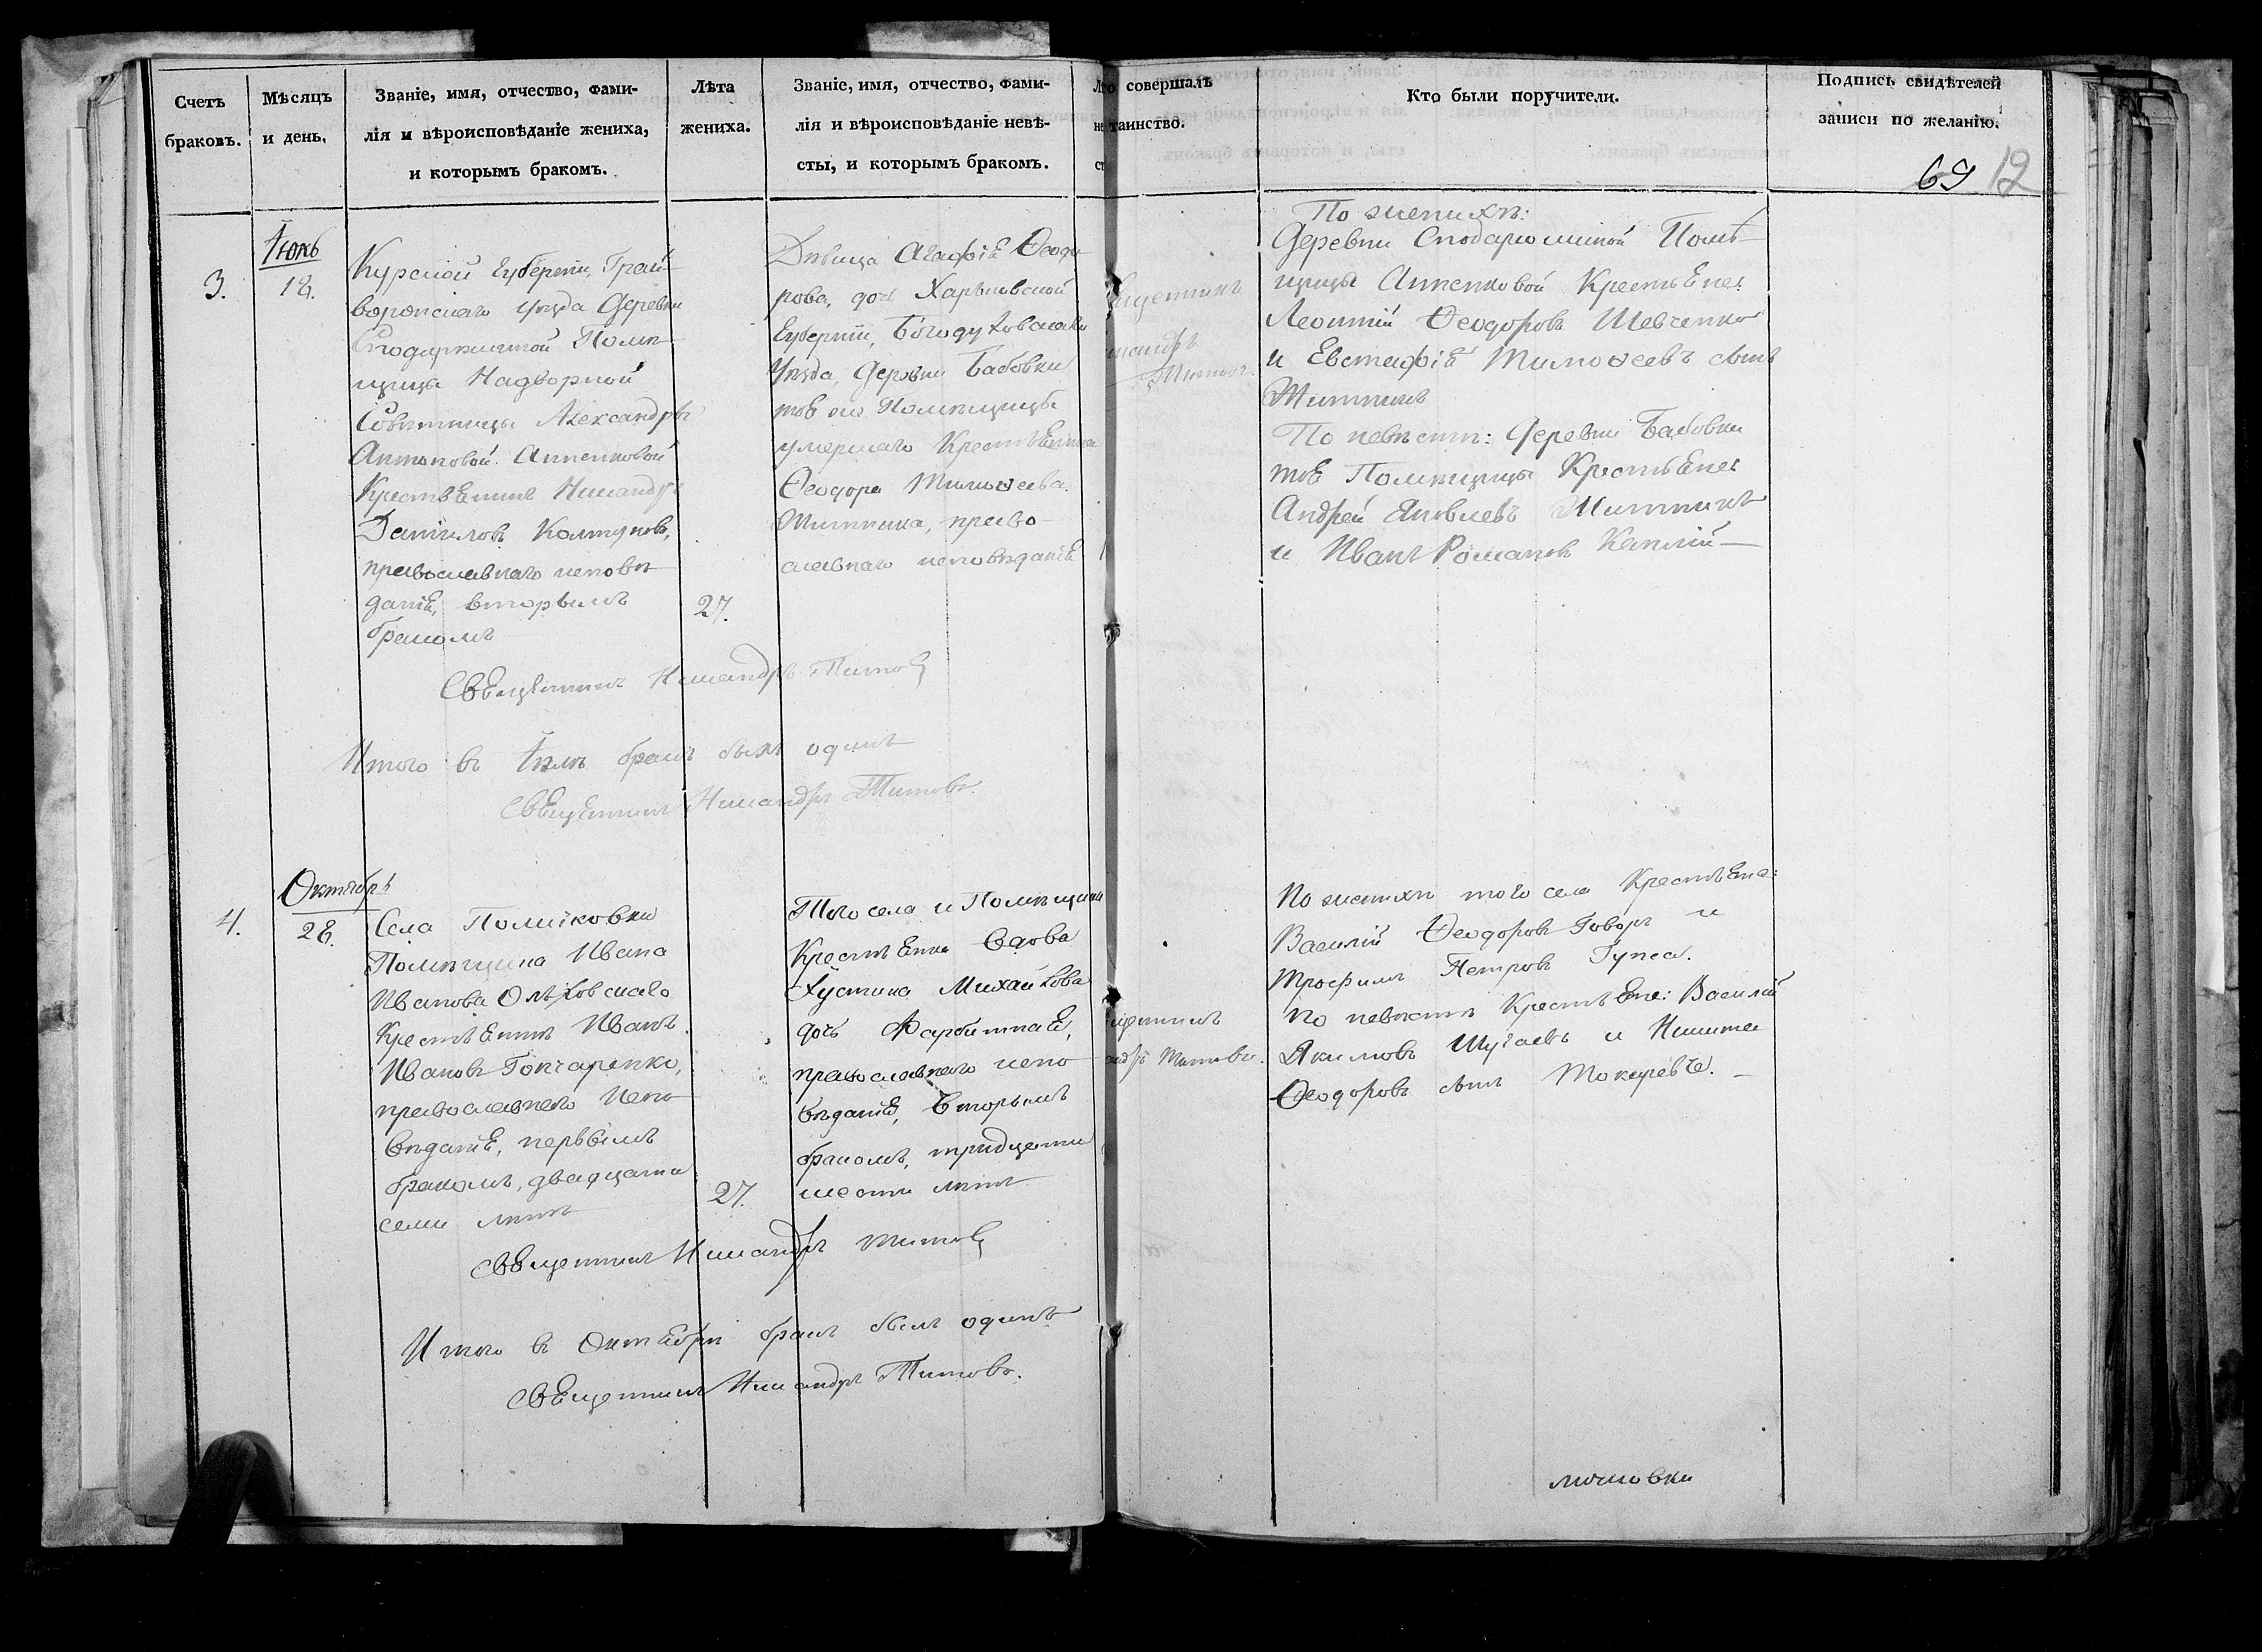 Счетъ
браковъ.
Мѣсяцъ
и день.
Званіе, имя, отчество, фами-
лія и вѣроисповѣданіе жениха,
и которымъ бракомъ.
Лѣта
жениха.
Званіе, имя, отчество, фами-
лія и вѣроисповѣданіе невѣ-
сты, и которымъ бракомъ.
совершалъ
таинство.
Кто были поручители.
Подпись свидѣтелей
записи по желанію.
69 12
3.
18.
Курской Губерніи, Грай-
воронскаго уѣзда Деревни
Помѣ-
щицы Надворной
Совѣтницы Александры
Антоновой Анненковой
Крестьянинъ Никандръ
Даниловъ
православнаго исповѣ-
данія, вторымъ
бракомъ
27.
Дѣвица Агафія Ѳеодо
рова, дочь Харьковской
Губерніи, Богодуховскаго
Уѣзда, Деревни Бабовки
той же Помѣщицы
умершаго Крестьянина
Ѳеодора Тимоѳеева
право-
славнаго исповѣданія
По женихѣ:
Деревни Помѣ-
щицы Анненковой Крестьяне:
Леонтій Ѳеодоровъ Шевченко
и Евстафій Тимоѳеевъ сынъ
По невѣстѣ: Деревни Бабовки
той Помѣщицы Крестьяне:
Андрей Яковлевъ
и Иванъ Романовъ
Священникъ Никандръ Титовъ
Итого въ бракъ былъ одинъ
Священникъ Никандръ Титовъ.
Октябрь
4.
28.
Села
Помѣщика Ивана
Иванова Ольховскаго
Крестьянинъ Иванъ
Ивановъ Гончаренко,
православнаго испо-
вѣданія, первымъ
бракомъ, двадцати
семи лѣтъ
27.
Того села и Помѣщика
Крестьянка Вдова
Іустина Михайлова
дочь
православнаго испо-
вѣданія, Вторымъ
бракомъ, тридцати
шести лѣтъ
андръ Титовъ.
По женихѣ того села Крестьяне:
Василій Ѳеодоровъ Говоръ и
Трофимъ Петровъ
по невѣстѣ Крестьяне: Василій
Якимовъ и Никита
Ѳеодоровъ сынъ
Священникъ Никандръ Титовъ
Итого въ Октябрѣ бракъ былъ одинъ
Священникъ Никандръ Титовъ.